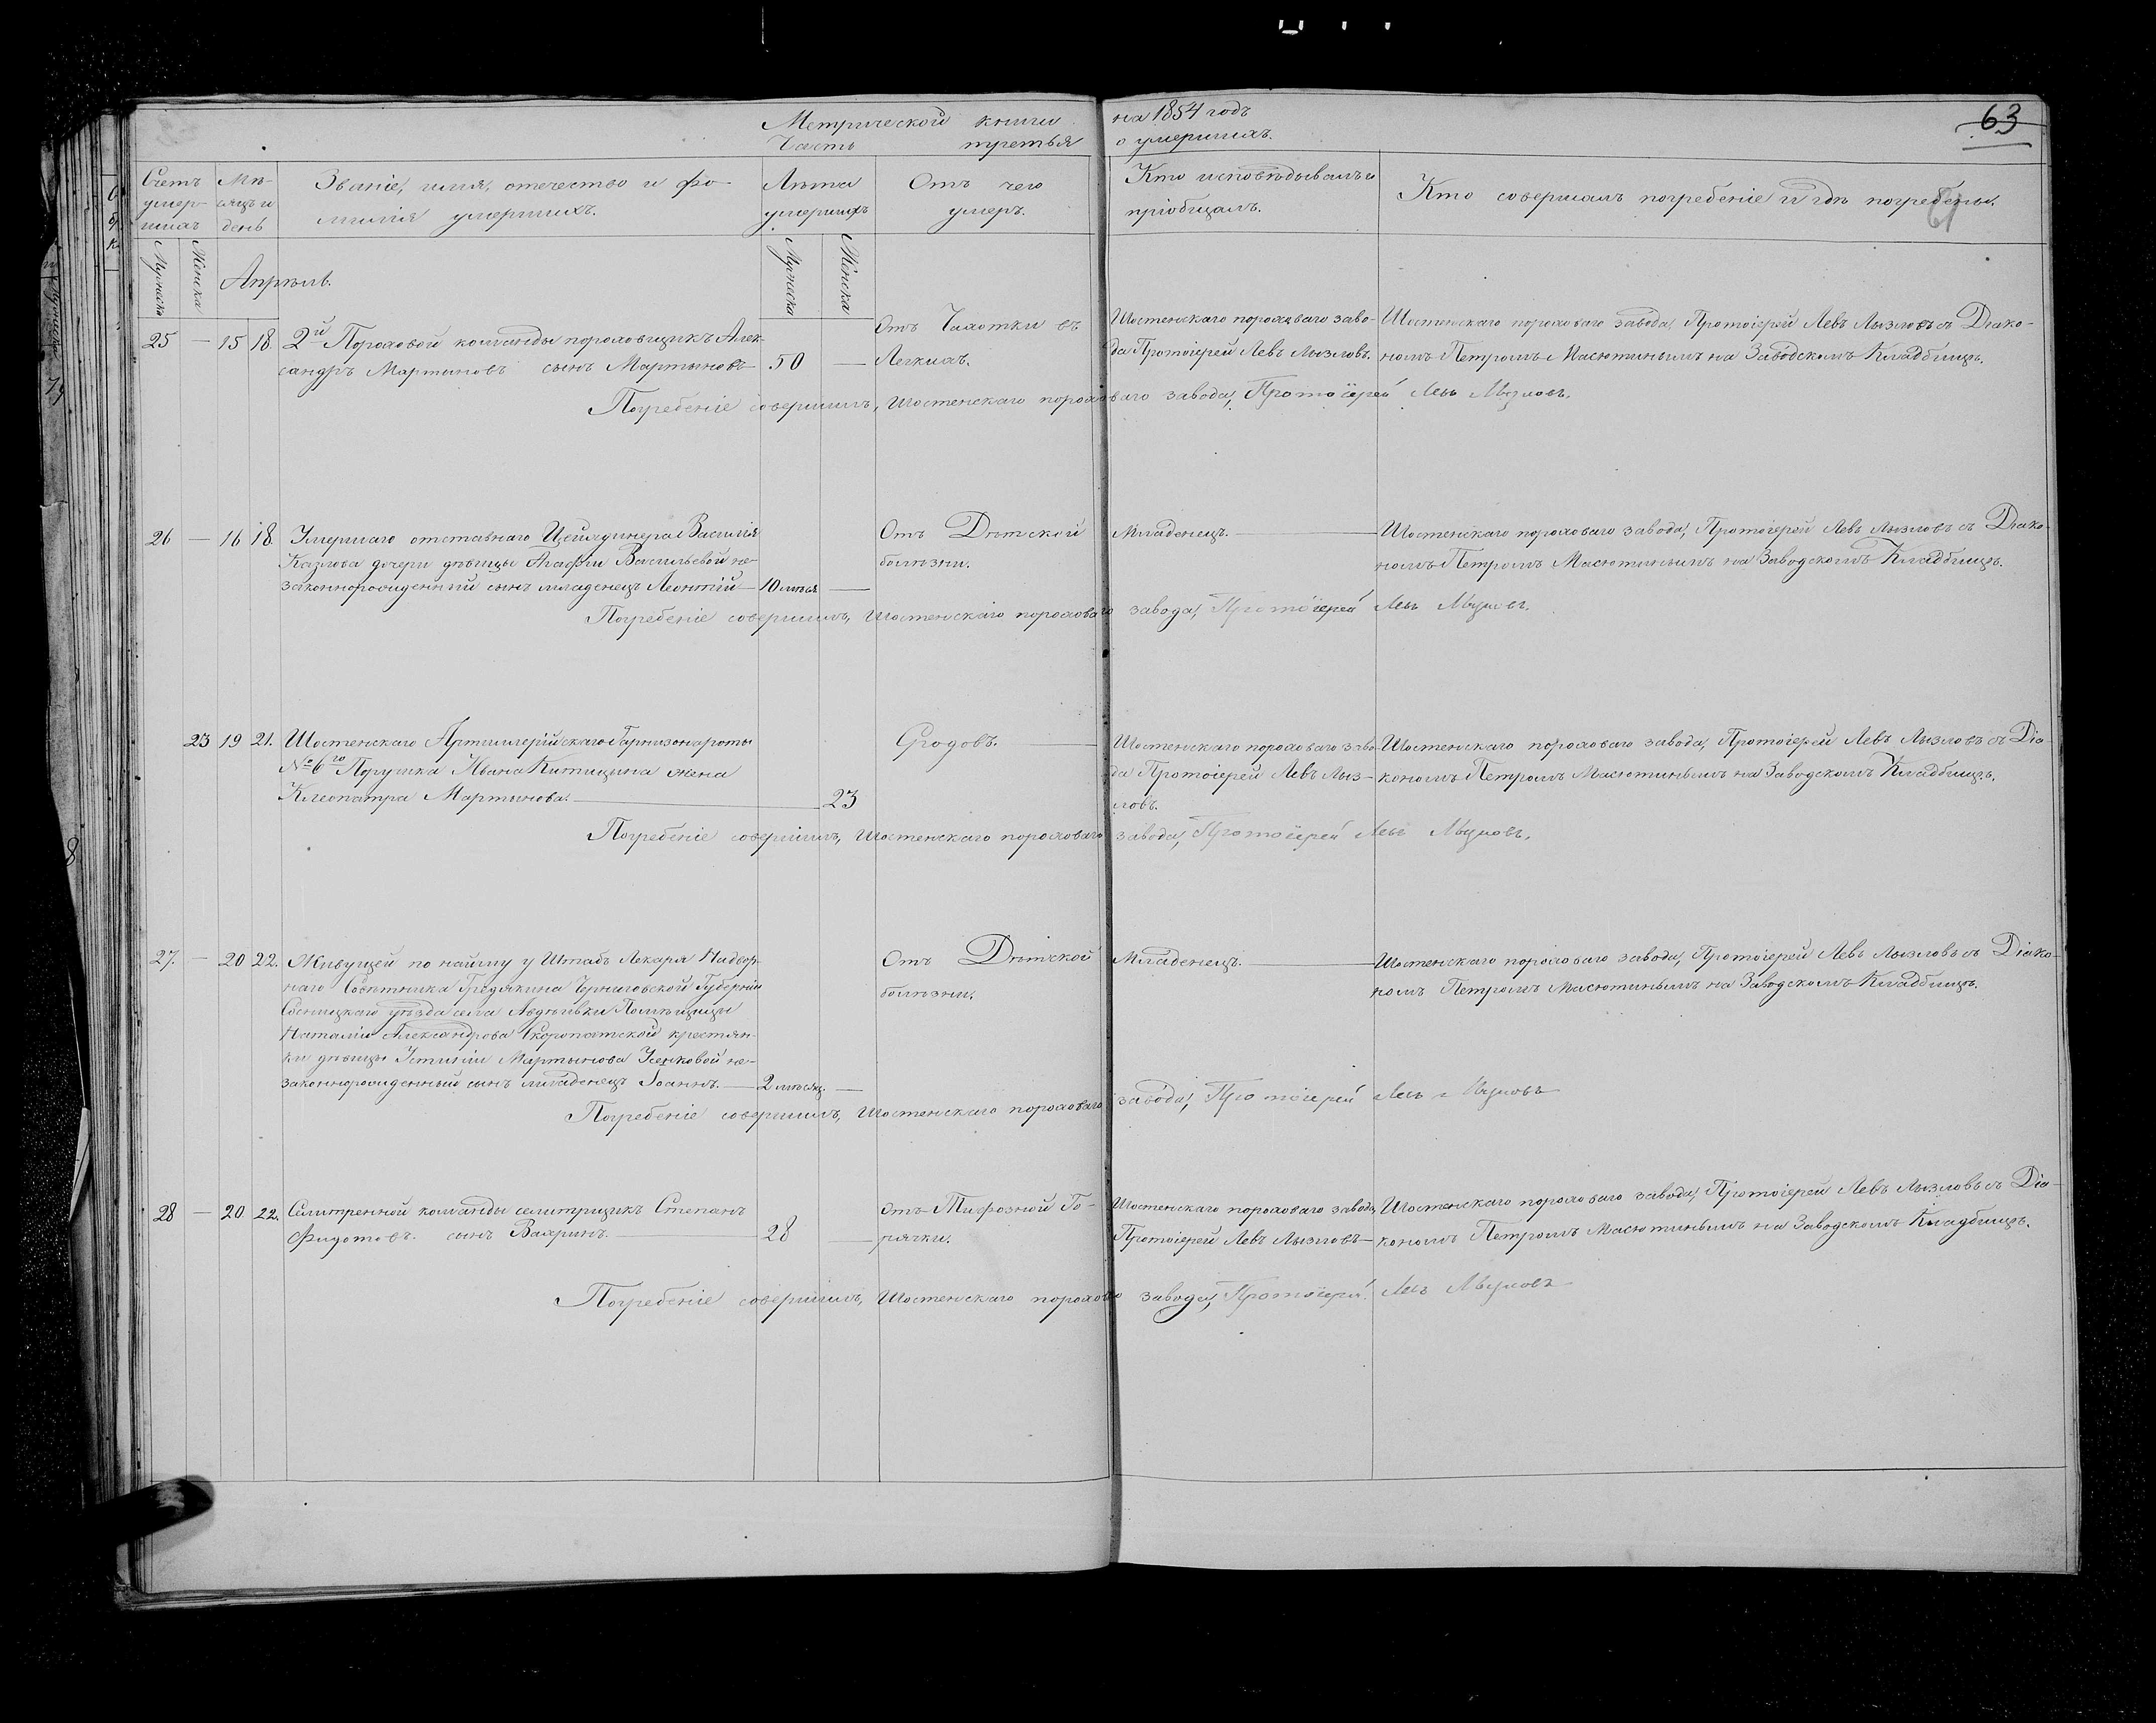 Метрической книги на 1854 годъ
Часть третья о умершихъ.
63
61
Счетъ умер-шихъ
Мѣ-сяцъ и день
Званіе, имя, отечество и фа-
милія умершихъ.
Лѣта умершихъ
Отъ чего умеръ.
Кто исповѣдывалъ и пріобщалъ.
Кто совершалъ погребеніе и гдѣ погребены.
Мужеска
Женска
Апрѣль.
Мужеска
Женска
25 — 15 18. 2й Пороховой команды пороховщикъ Алек-
сандръ Мартыновъ сынъ Мартыновъ — 50 —
Отъ Чахотки въ
Легкихъ.
Шостенскаго пороховаго заво-
да Протоіерей Левъ Лызловъ.
Шостенскаго пороховаго завода, Протоіерей Левъ Лызловъ съ Діако-
номъ Петромъ Масютинымъ на Заводскомъ Кладбищѣ.
Погребеніе совершилъ, Шостенскаго пороховаго завода, Протоіерей Левъ Лызловъ.
26 — 16 18. Умершаго отставнаго Цейлдинера Василія
Казлова дочери дѣвицы Агафіи Васильевой не-
законнорожденный сынъ младенецъ Леонтій — 10 мѣся —
Отъ Дѣтской
болѣзни.
Младенецъ. —
Шостенскаго пороховаго завода, Протоіерей Левъ Лызловъ съ Діако-
номъ Петромъ Масютинымъ на Заводскомъ Кладбищѣ.
Погребеніе совершилъ, Шостенскаго пороховаго завода, Протоіерей Левъ Лызловъ.
23 19 21. Шостенскаго Артиллерійскаго Гарнизона роты
№ 6го Поручика Ивана Китицына жена
Клеопатра Мартынова. — 23
Сродовъ. —
Шостенскаго пороховаго заво-
да Протоіерей Левъ Лыз-
ловъ.
Шостенскаго пороховаго завода, Протоіерей Левъ Лызловъ съ Діа-
кономъ Петромъ Масютинымъ на Заводскомъ Кладбищѣ.
Погребеніе совершилъ, Шостенскаго пороховаго завода, Протоіерей Левъ Лызловъ.
27. — 20 22. Живущей по найму у Штабъ Лекаря Надвор-
наго Совѣтника Гредякина Черниговской Губерніи
Сосницкаго уѣзда села Авдѣевки Помѣщицы
Наталіи Александрова Скоропатской крестьян-
ки дѣвицы Устиніи Мартынова Усенковой не-
законнорожденный сынъ младенецъ Іоаннъ. — 2 мѣсяц. —
Отъ Дѣтской
болѣзни.
Младенецъ. —
Шостенскаго пороховаго завода, Протоіерей Левъ Лызловъ съ Діако-
номъ Петромъ Масютинымъ на Заводскомъ Кладбищѣ.
Погребеніе совершилъ, Шостенскаго пороховаго завода, Протоіерей Левъ Лызловъ
28 — 20. 22. Селитренной команды селитрщикъ Степанъ
Фидотовъ. сынъ Вахринъ. — 28 —
отъ Тифозной Го-
рячки.
Шостенскаго пороховаго завода,
Протоіерей Левъ Лызловъ —
Шостенскаго пороховаго завода, Протоіерей Левъ Лызловъ съ Діа-
кономъ Петромъ Масютинымъ на Заводскомъ Кладбищѣ.
Погребеніе совершилъ, Шостенскаго порохово завода, Протоіерей. Левъ Лызловъ